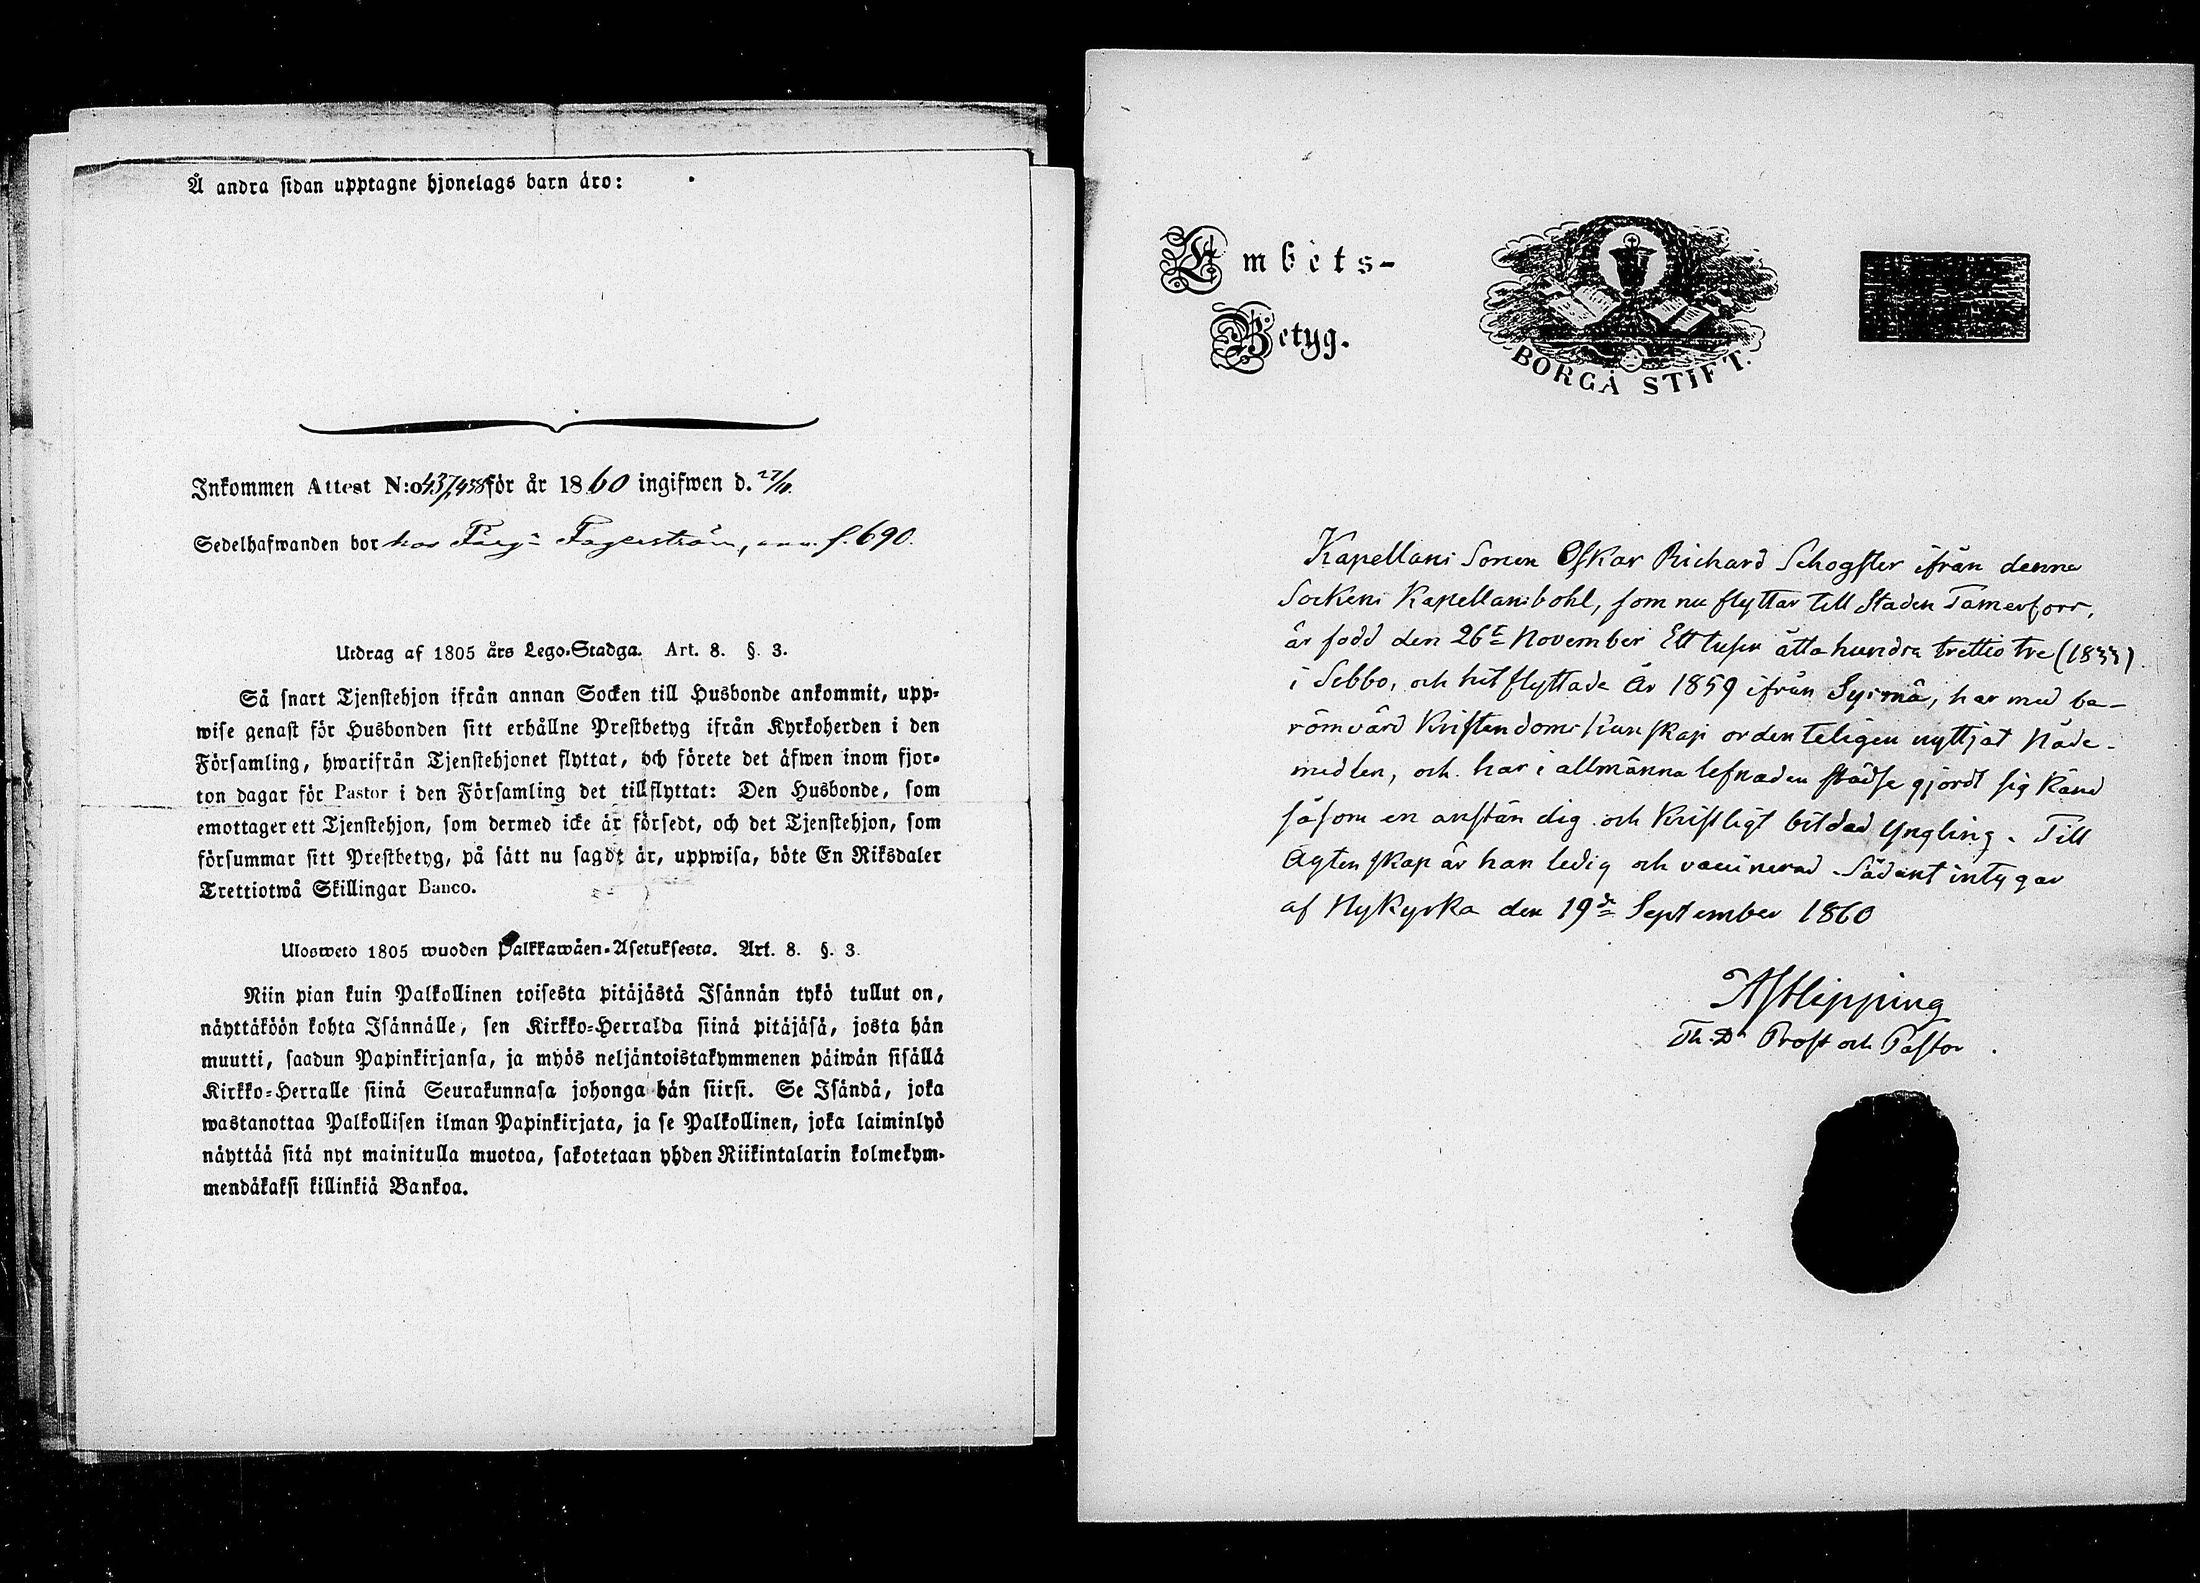 Å andra sidan upptagne hjonelags barn äro:
Inkommen Attest N:o 437,458 för år 1860 ingifwen d. 27/11.
Sedelhafwanden bor hos Färg: Fagerström, f. 690.
Utdrag af 1805 års Lego-Stadga. Art. 8. §. 3.
Så snart Tjenstehjon ifrån annan Socken till Husbonde ankommit, upp-
wise genast för Husbonden sitt erhållne Prestbetyg ifrån Kyrkoherden i den
Församling, hwarifrån Tjenstehjonet flyttat, och förete det äfwen inom fjor-
ton dagar för Pastor i den Församling det tillflyttat: Den Husbonde, som
emottager ett Tjenstehjon, som dermed icke är försedt, och det Tjenstehjon, som
försummar sitt Prestbetyg, på sätt nu sagdt är, uppwisa, böte En Riksdaler
Trettiotwå Skillingar Banco.
Ulosweto 1805 wuoden Palkkawäen-Asetuksesta. Art. 8. §. 3.
Niin pian kuin Palkollinen toisesta pitäjästä Isännän tykö tullut on,
näyttäköön kohta Isännälle, sen Kirkko-Herralda siinä pitäjäsä, josta hän
muutti, saadun Papinkirjansa, ja myös neljäntoistakymmenen päiwän sisällä
Kirkko-Herralle siinä Seurakunnasa johonga hän siirsi. Se Isändä, joka
wastanottaa Palkollisen ilman Papinkirjata, ja se Palkollinen, joka laiminlyö
näyttää sitä nyt mainitulla muotoa, sakotetaan yhden Riikintalarin kolmekym-
mendäkaksi killinkiä Bankoa.
Embets-
Betyg.
BORGÅ STIFT.
Kapellans Sonen Oskar Richard Schogster ifrån denna
Sockens Kapellansbohl, som nu flyttar till Staden Tamerfors,
är född den 26te November Ett tusen åtta hundra trettio tre (1833)
i Sebbo, och hit flyttade År 1859 ifrån Sysmä, har med be-
römvärd Kristendoms kunskap ordenteligen nyttjat Nåde-
medlen, och har i allmänna lefnaden städse gjordt sig känd
såsom en anständig och Kristligt bildad Yngling. Till
Ägtenskap är han ledig och vaccinerad. Sådant intygar
af Nykyrka den 19de September 1860
Th. Dr Prost och Pastor.